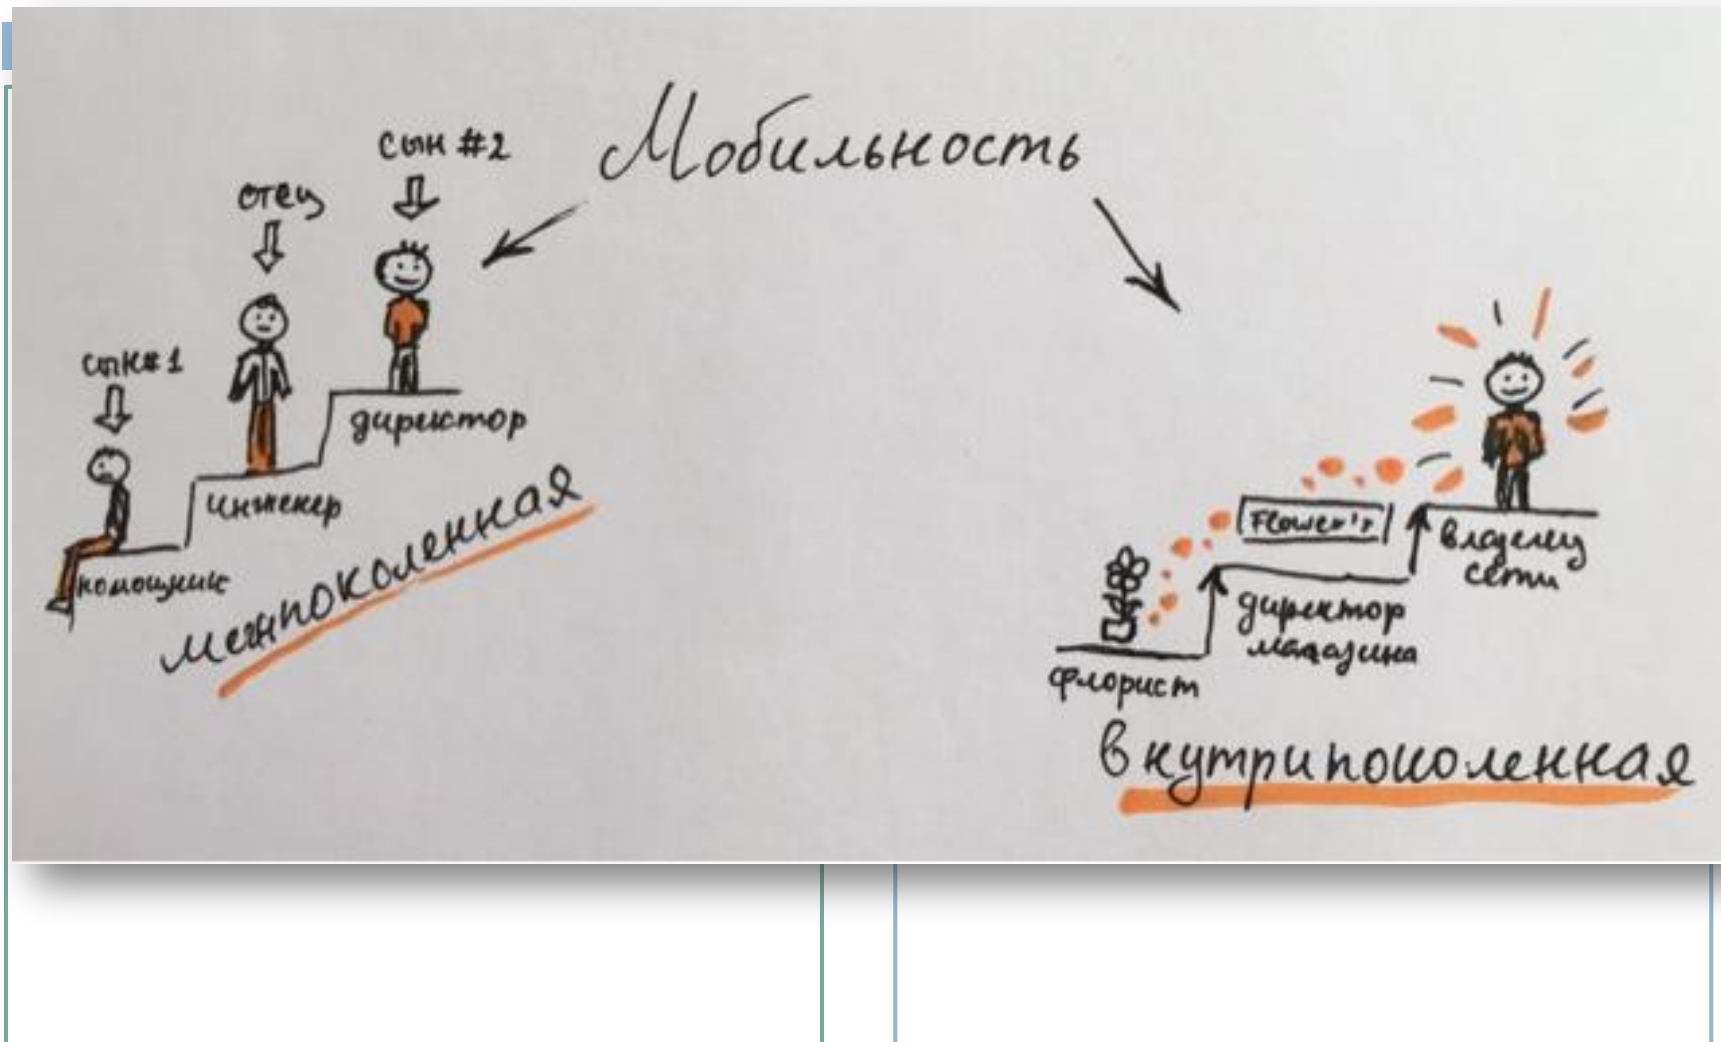 Мобильность
сын #2
отец
сын #1
директор
инженер
помощник
межпоколенная
Flower's
владелец
сети
директор
магазина
флорист
внутрипоколенная